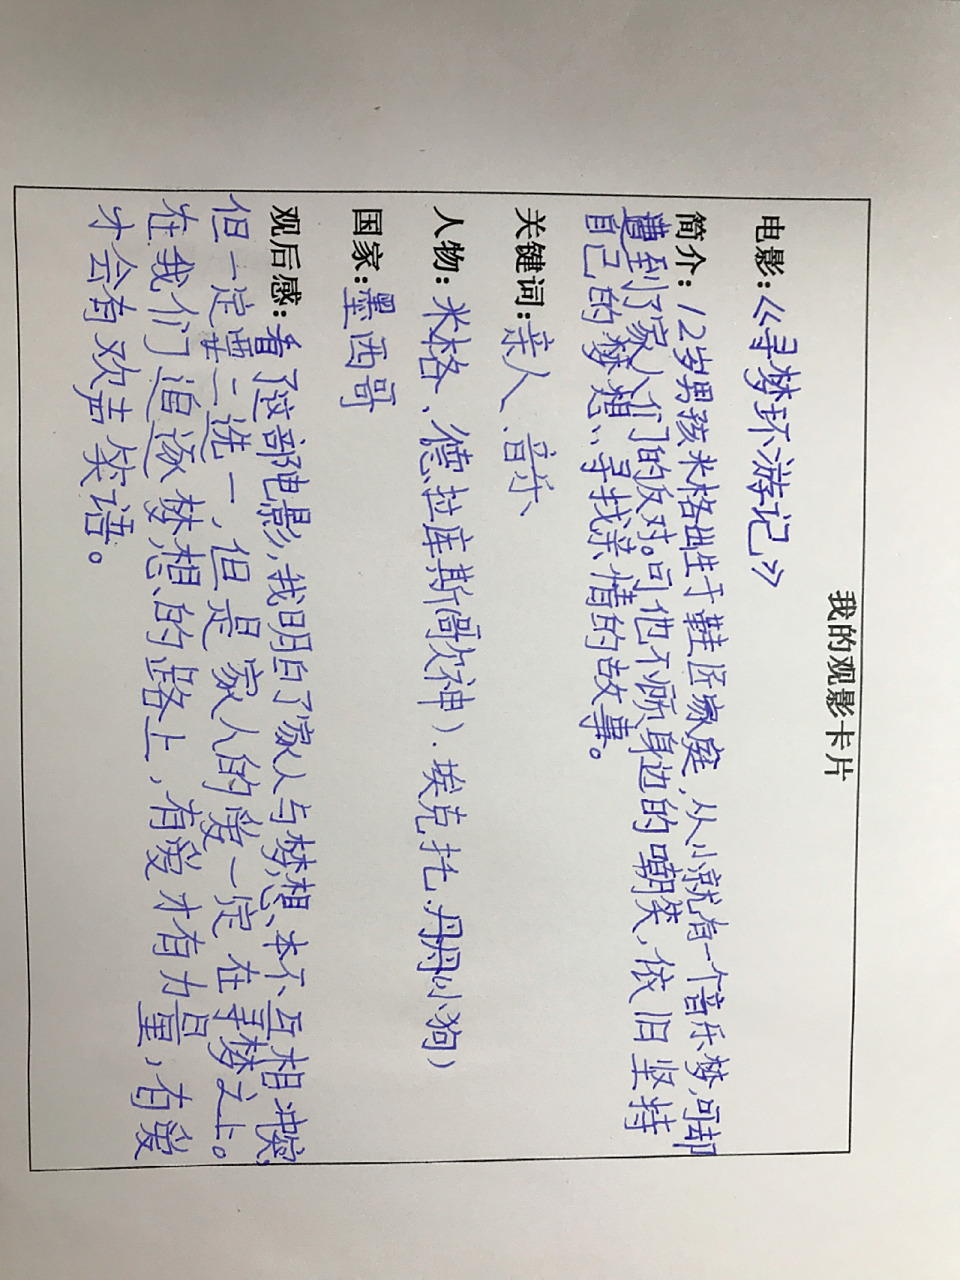 我的观影卡片
电影:《寻梦环游记》
简介:12岁男孩米格出生于鞋匠家庭,从小就有一个音乐梦,可却
遭到了家人们的反对。可他不顾身边的嘲笑,依旧坚持
自己的梦想,寻找亲情的故事。
关键词:亲人、音乐、
人物:米格、德拉库斯(歌神).埃克托.丹丹(小狗)
国家:墨西哥
观后感:看了这部电影,我明白了家人与梦想,本不互相冲突,
但一定要二选一,但是家人的爱一定在寻梦之上。
在我们追逐梦想的路上,有爱才有力量,有爱
才会有欢声笑语。